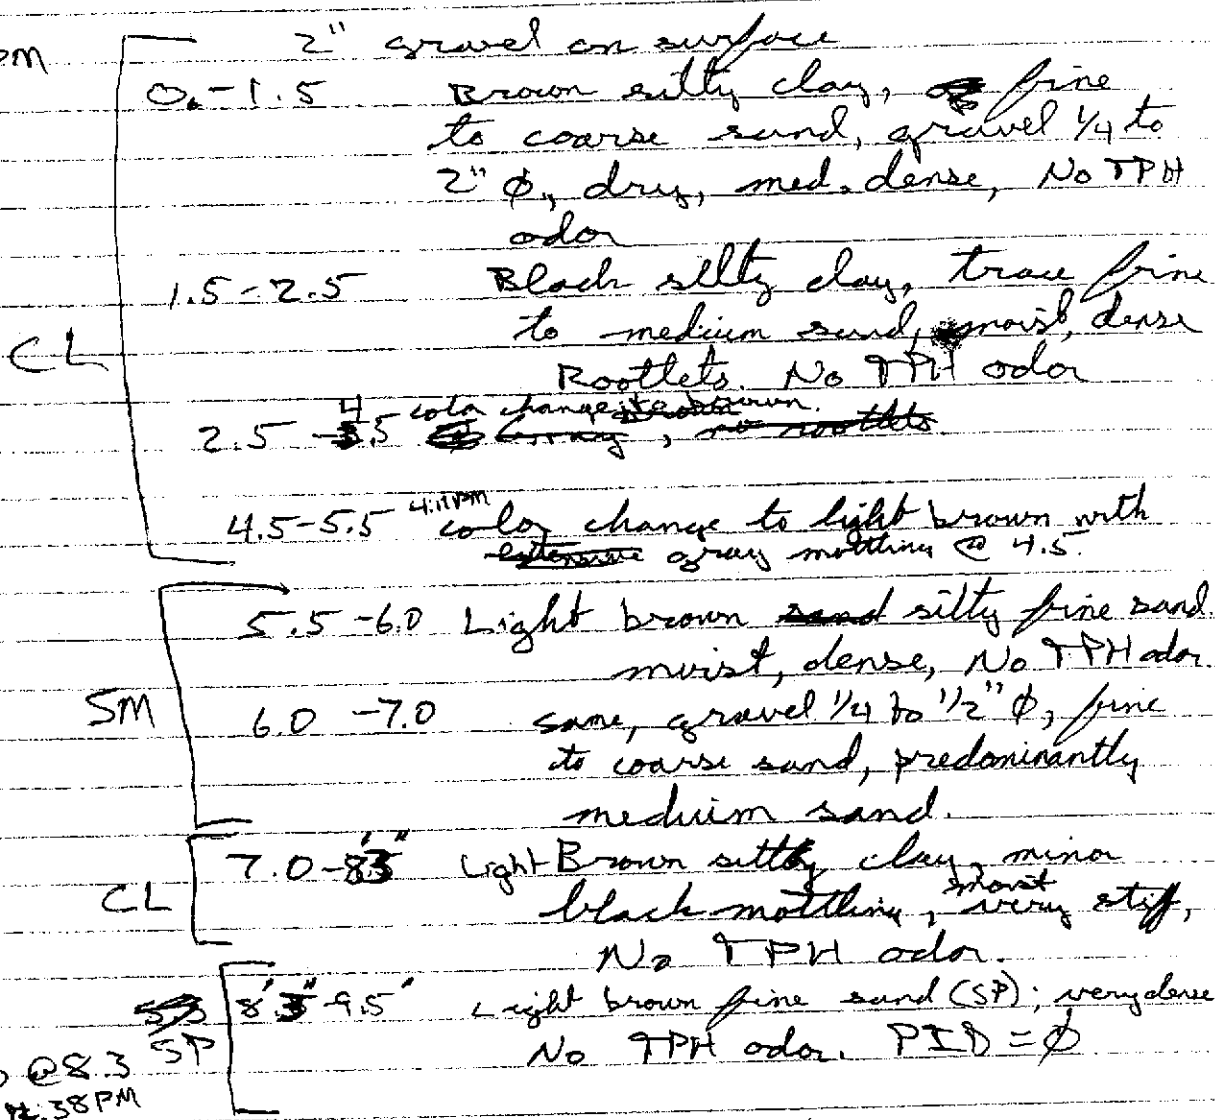 PM
2" gravel on surface
0.-1.5 Brown silty clay, fine
to coarse sand, gravel 1/4 to
2" ϕ, dry, med. dense, No TPH
odor
1.5-2.5 Black silty clay, trace fine
to medium sand, moist, dense
CL
Rootlets. No TPH odor
2.5-4.5 color change to brown.
4.5-5.5 4:11PM color change to light brown with
gray mottling @ 4.5.
5.5-6.0 Light brown silty fine sand.
moist, dense, No TPH odor.
SM
6.0-7.0 same, gravel 1/4 to 1/2" ϕ, fine
to coarse sand, predominantly
medium sand.
7.0-8'3" Light Brown silty clay, minor
CL
black mottling, moist very stiff,
No TPH odor.
8'3"-9.5' Light brown fine sand (SP); very dense
SP
No TPH odor. PID=ϕ
@8.3
:38PM